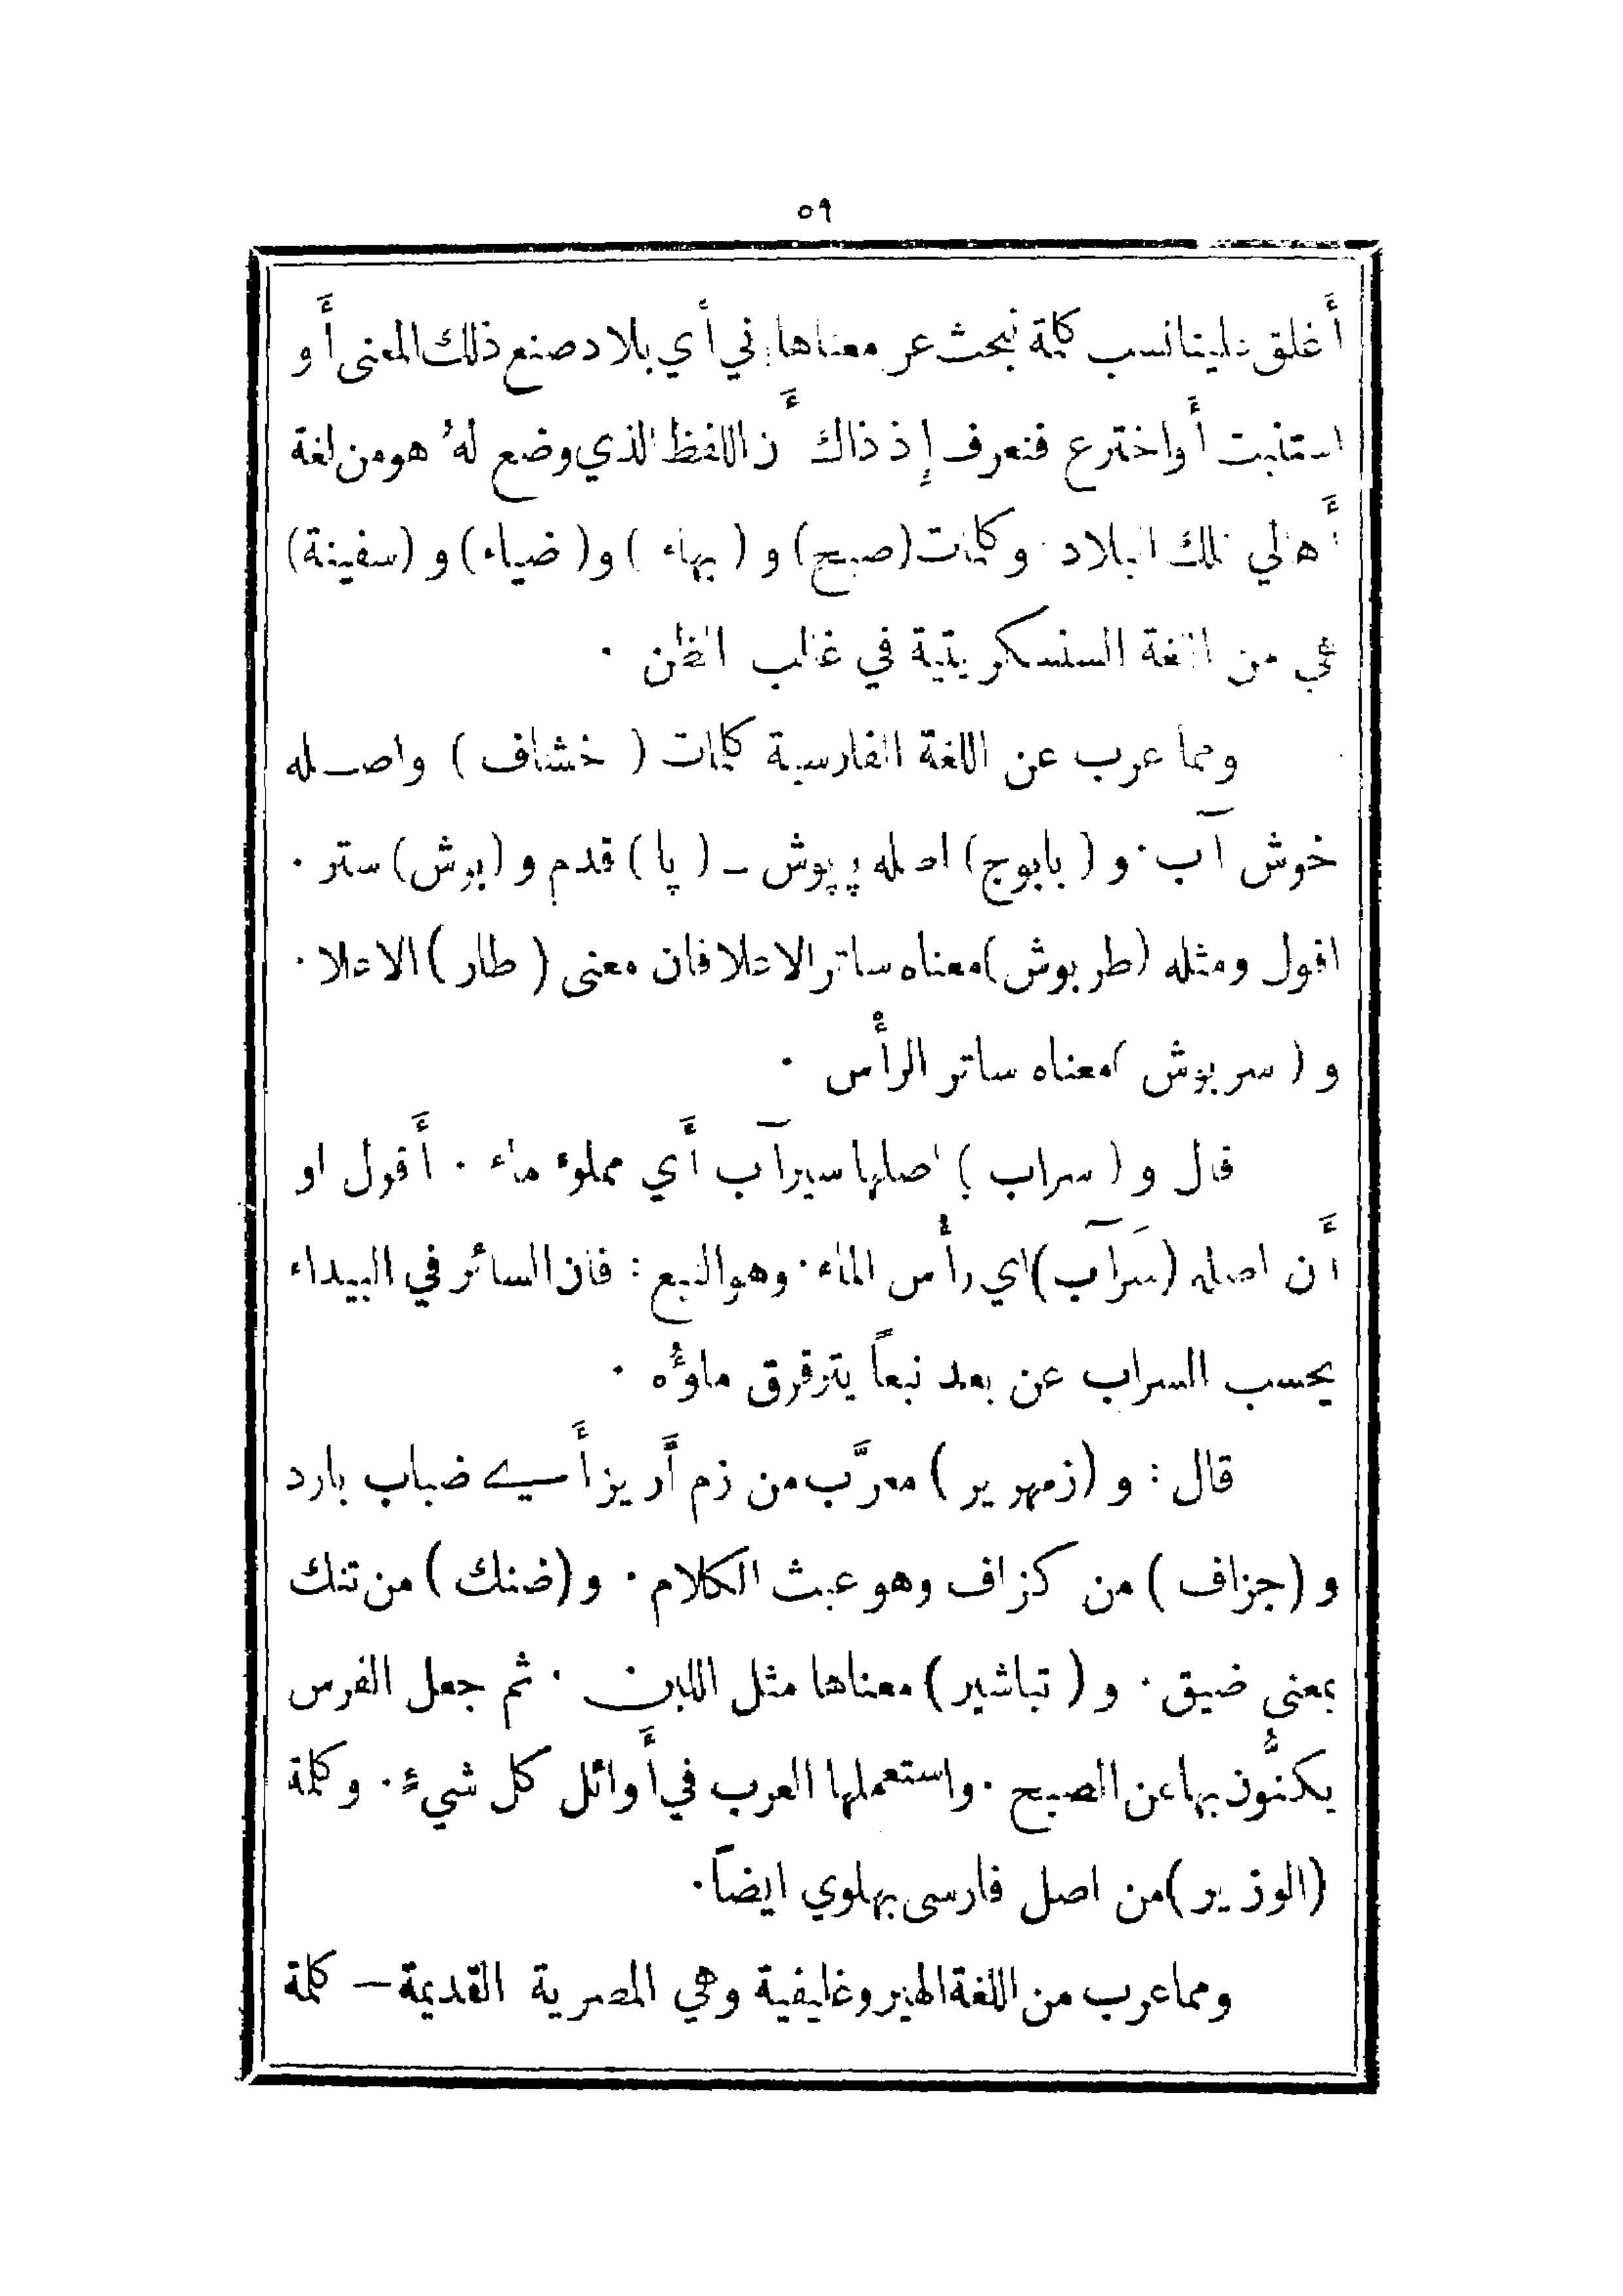 ٥٩
أغلق علينا نسب كلمة نبحث عن معناها في أي بلاد صنع ذلك المعنى أو
استنبت أو اخترع فنعرف إذ ذاك أن اللفظ الذي وضع لهُ هو من لغة
أهالي تلك البلاد وكلمات (صبح) و (بهاء) و (ضياء) و (سفينة)
هي من اللغة السنسكريتية في غالب الظن ٠
ومما عرب عن اللغة الفارسية كلمات ( خشاف ) واصله
خوش آب ٠ و ( بابوج) اصله پپوش – ( پا ) قدم و (بوش) ستر ٠
اقول ومثله (طربوش) معناه ساتر الاعلا فان معنى ( طار ) الاعلا ٠
و ( سربوش ) معناه ساتر الرأْس ٠
قال و ( سراب ) اصلها سيرآب أَي مملوء ماء ٠ أَقول او
أَن اصله (سَرآب) اي رأس الماء ٠ وهو النبع : فان السائر في البيداء
يحسب السراب عن بعد نبعاً يترقرق ماؤُه ٠
قال : و (زمهرير ) معرَّب من زم أَريز أَسيے ضباب بارد
و (جزاف ) من كزاف وهو عبث الكلام ٠ و (ضنك ) من تنك
بمعنى ضيق ٠ و ( تباشير ) معناها مثل اللبن ٠ ثم جعل الفرس
يكنُّون بها عن الصبح ٠ واستعملها العرب في أَوائل كل شيءٍ ٠ وكلمة
(الوزير) من اصل فارسى بهلوي ايضاً ٠
ومما عرب من اللغة الهيروغليفية وهي المصرية القديمة – كلمة